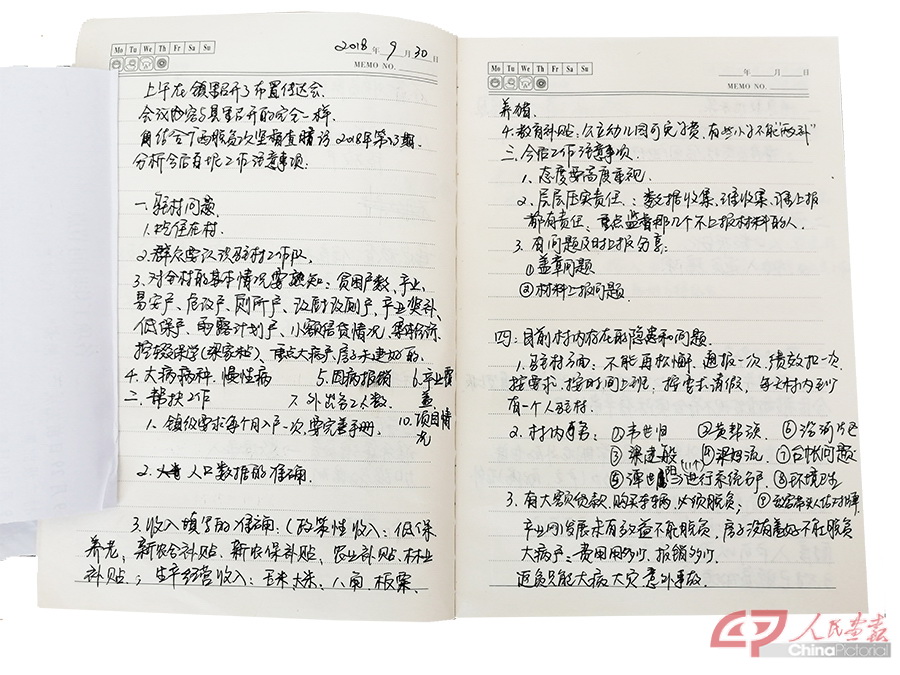 Mo Tu We Th Fr Sa Su
2018年9月30日
MEMO NO.
上午在镇里召开了布置传达会.
会议内容与县里召开的完全一样.
分析今后有 工作注意事项.
一. 驻村问题.
1. 吃住在村.
2. 群众要认识驻村工作队.
3. 对全村的基本情况要熟知: 贫困户数、产业、
易安户、危改户、厕所户、改厨改厕户、产业奖补、
低保户、雨露计划户、小额信贷情况、集体经济、
控辍保学(梁家松)、重点大病户、房子未建好的.
4. 大病病种. 慢性病 5. 因病报销 6. 产业覆盖
二. 帮扶工作 7. 外出务工人数.
1. 镇级要求每个月入户一次, 要完善手册. 10. 项目情况
2. 人口数据的准确.
3. 收入填写的准确: (政策性收入: 低保
养老、新农合补贴、新农保补贴、农业补贴、林业
补贴; 生产经营收入: 玉米、大米、八角、板栗、
Mo Tu We Th Fr Sa Su
年 月 日
MEMO NO.
养殖.
4. 教育补贴: 公立幼儿园可免费, 有些小学不能"两补"
三. 今后工作注意事项.
1. 态度要高度重视.
2. 层层压实责任: 数据收集、谁收集、谁上报
都有责任. 重点监督那几个不上报材料的人.
3. 有问题及时上报分享:
①盖章问题
②材料上报问题.
四: 目前村内存在的隐患和问题.
1. 驻村方面: 不能再松懈. 通报一次, 绩效扣一次.
按要求、按时间上班, 按需求请假, 每天村内至少
有一个人驻村.
2. 村内事务: ①韦世归 ②黄帮颂. ⑥治渝片区
③梁建般 ④梁炳流. ⑦台帐问题
⑤谭世 当进行系统 户. ⑧环境卫生
3. 有大额贷款、购买车辆, 必须脱贫;
产业刚发展未有效益不能脱贫, 房子没有盖好不能脱贫
大病户: 费用用多少, 报销多少.
返贫只能大病大灾意外事故.
人民画报
China Pictorial